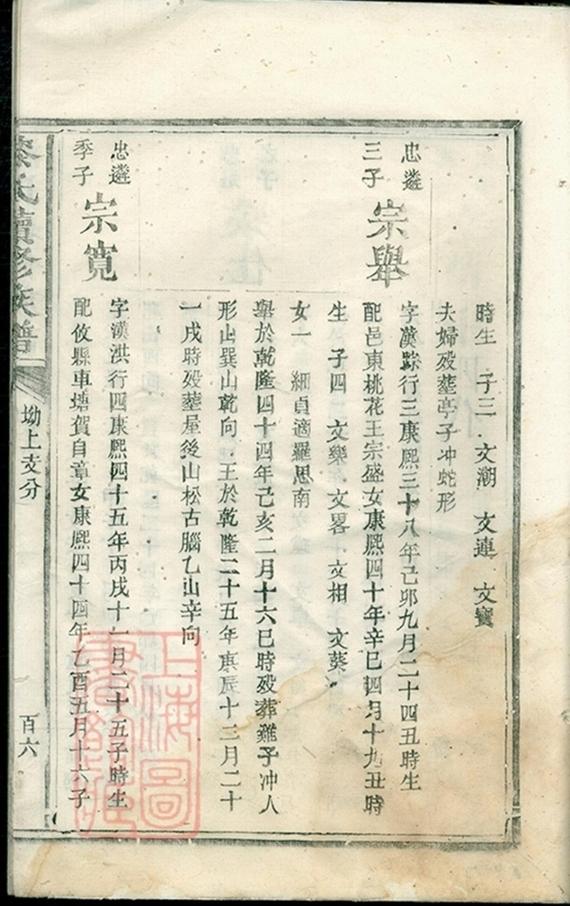 時生 子三 文潮 文連 文寶
夫婦歿塟亭子冲蛇形
忠遴
三子
宗舉
字漢踪行三康熈三十八年己卯九月二十四丑時生
配邑東桃花王宗盛女康熈四十年辛巳四月十九丑時
生 子四 文樂 文畧 文相 文葵
女一 細貞適羅思南
舉於乾隆四十四年己亥二月十六巳時歿葬雞子冲人
形山巽山乾向 王於乾隆二十五年庚辰十三月二十
一戌時歿塟屋後山松古腦乙山辛向
忠遴
季子
宗寬
字漢洪行四康熈四十五年丙戌十一月二十五子時生
配攸縣車塘賀自章女康熈四十四年乙酉五月十六子
氏續修族譜
坳上支分
百六
上海圖